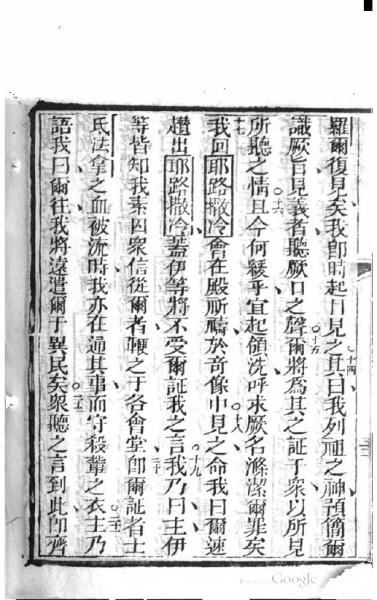 羅爾復見矣我卽時起目見之其曰我列祖之神預簡爾
十四
識厥旨見義者聽厥口之聲爾將為其之証于衆以所見
十五
所聽之情且今何緩乎宜起領洗呼求厥名滌潔爾罪矣
十六
我回耶路撒冷會在殿祈禱於奇像中見之命我曰爾速
十七
十八
趲出耶路撒冷蓋伊等將不受爾証我之言我乃曰主伊
十九
等皆知我素因衆信從爾者鞭之于各會堂卽爾証者士
二十
氏法拿之血被流時我亦在逼其事而守殺輩之衣主乃
二一
語我曰爾往我將遠遣爾于異民矣衆聽之言到此卽齊
二二
Google